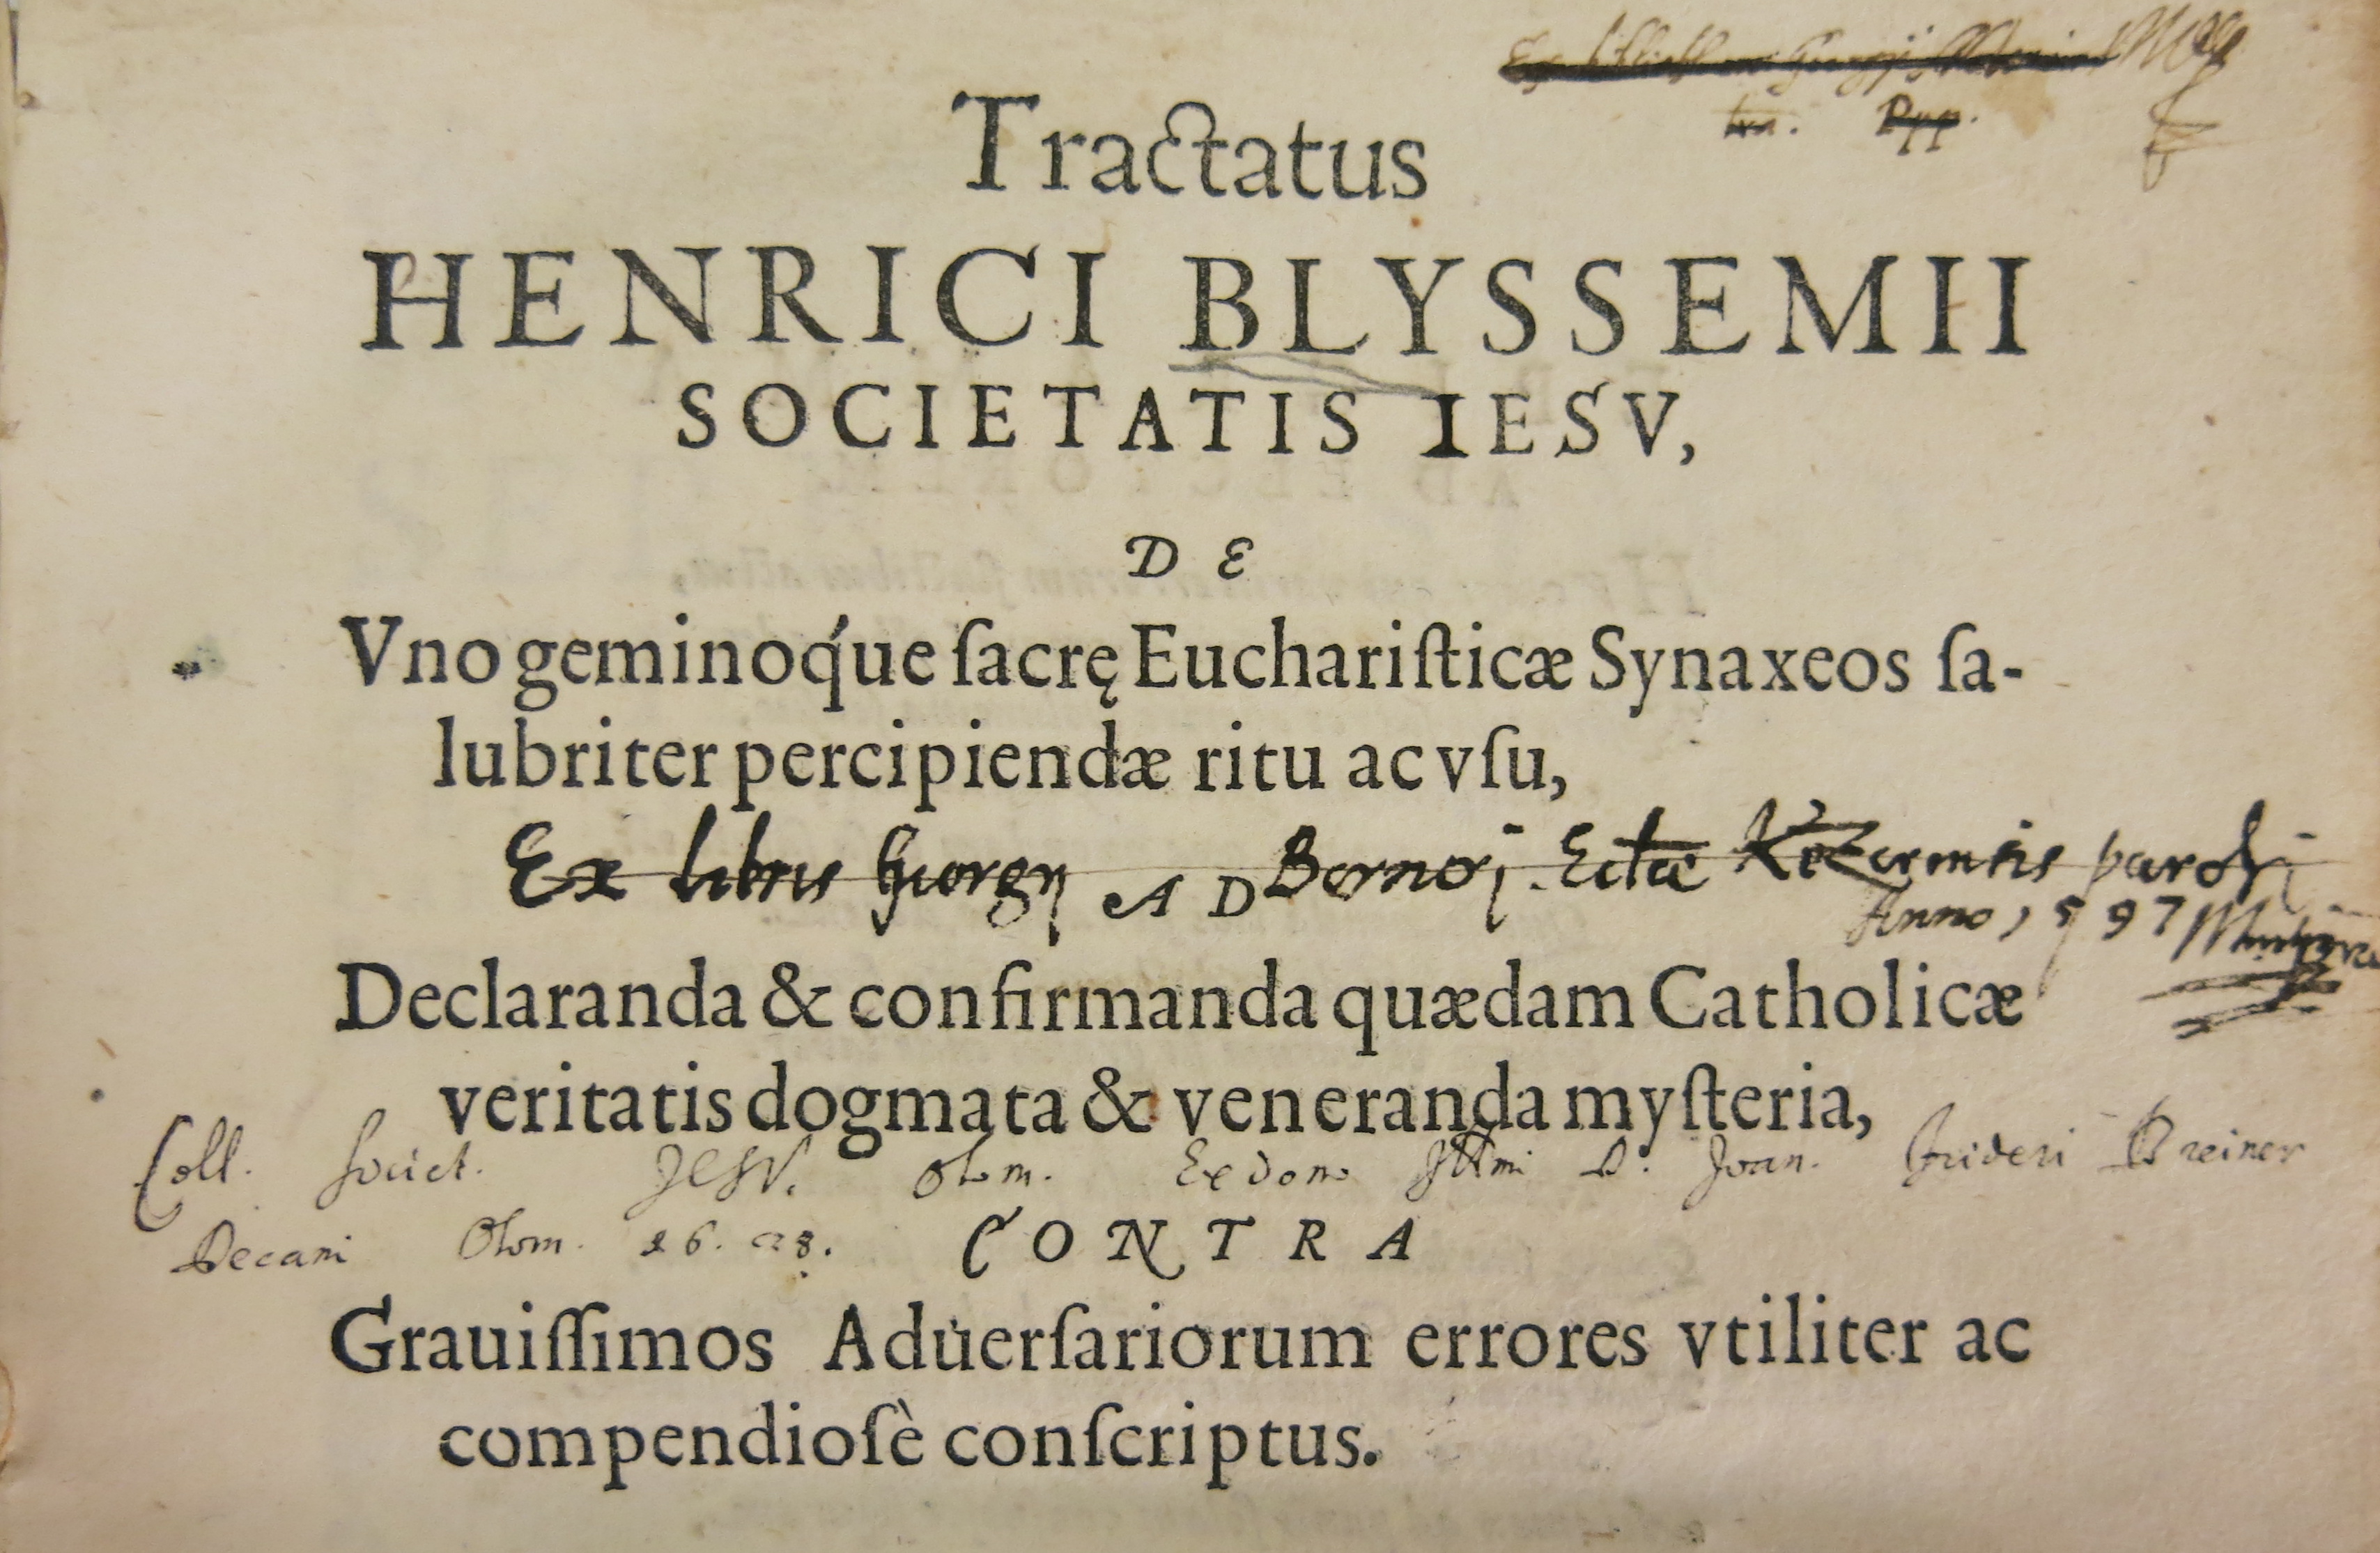 Tractatus
HENRICI BLYSSEMII
SOCIETATIS IESV,
DE
Vno geminoq́ue ſacrę Euchariſticæ Synaxeos ſa-
lubriter percipiendæ ritu ac vſu,
Ex libris Georgij Bornorj. Ectæ
AD
Anno 1597
Declaranda & confirmanda quædam Catholicæ
veritatis dogmata & veneranda myſteria,
Coll. Societ. JESV. Olom. Ex dono Jllmi D. Joan. Frideri Breiner
Decani Olom. 16.28.
CONTRA
Grauiſſimos Aduerſariorum errores vtiliter ac
compendioſè conſcriptus.